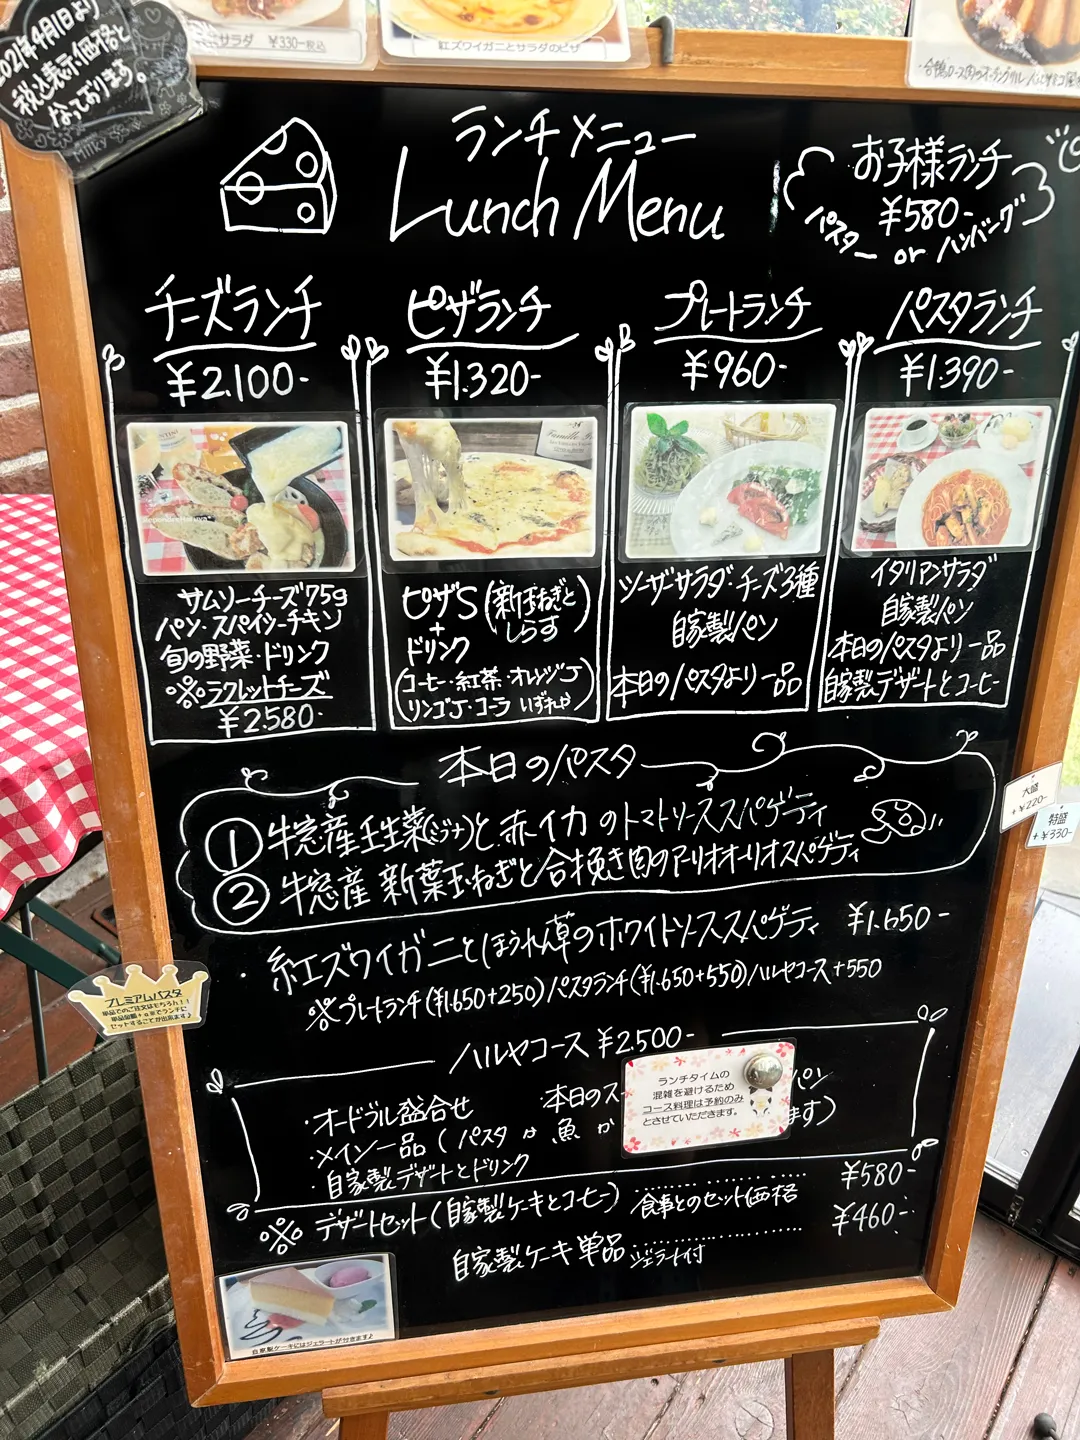 2021年4月1日より
税込表示価格と
なっております。
Milky
サラダ ¥330-税込
紅ズワイガニとサラダのピザ
ランチメニュー
Lunch Menu
お子様ランチ
¥580-
パスタ or ハンバーグ
チーズランチ
¥2.100-
サムソーチーズ75g
パン・スパイシーチキン
旬の野菜・ドリンク
※ラクレットチーズ
¥2.580-
ピザランチ
¥1.320-
ピザS(新玉ねぎと
しらす)
+
ドリンク
(コーヒー・紅茶・オレンジJ
リンゴJ・コーラ いずれや)
プレートランチ
¥960-
シーザーサラダ・チーズ3種
自家製パン
本日のパスタより一品
パスタランチ
¥1.390-
イタリアンサラダ
自家製パン
本日のパスタより一品
自家製デザートとコーヒー
本日のパスタ
① 牛窓産壬生菜(ミブナ)と赤イカのトマトソーススパゲティ
② 牛窓産 新葉玉ねぎと合挽き肉のアーリオオーリオスパゲティ
大盛
+¥220-
特盛
+¥330-
・紅ズワイガニとほうれん草のホワイトソーススパゲティ ¥1.650-
※プレートランチ(¥1.650+250)/パスタランチ(¥1.650+550)/ハルヤコース+550
プレミアムパスタ
単品でのご注文はもちろん!!
単品金額+α※でランチに
セットすることが出来ます♪
ハルヤコース ¥2.500-
・オードブル盛合せ ・本日のス パン
・メイン一品(パスタ or 魚 か ます)
・自家製デザートとドリンク
ランチタイムの
混雑を避けるため
コース料理は予約のみ
とさせていただきます。
※デザートセット(自家製ケーキとコーヒー) 食事とのセット価格 ¥580-
自家製ケーキ単品 ジェラート付 ¥460-
自家製ケーキにはジェラートが付きます♪